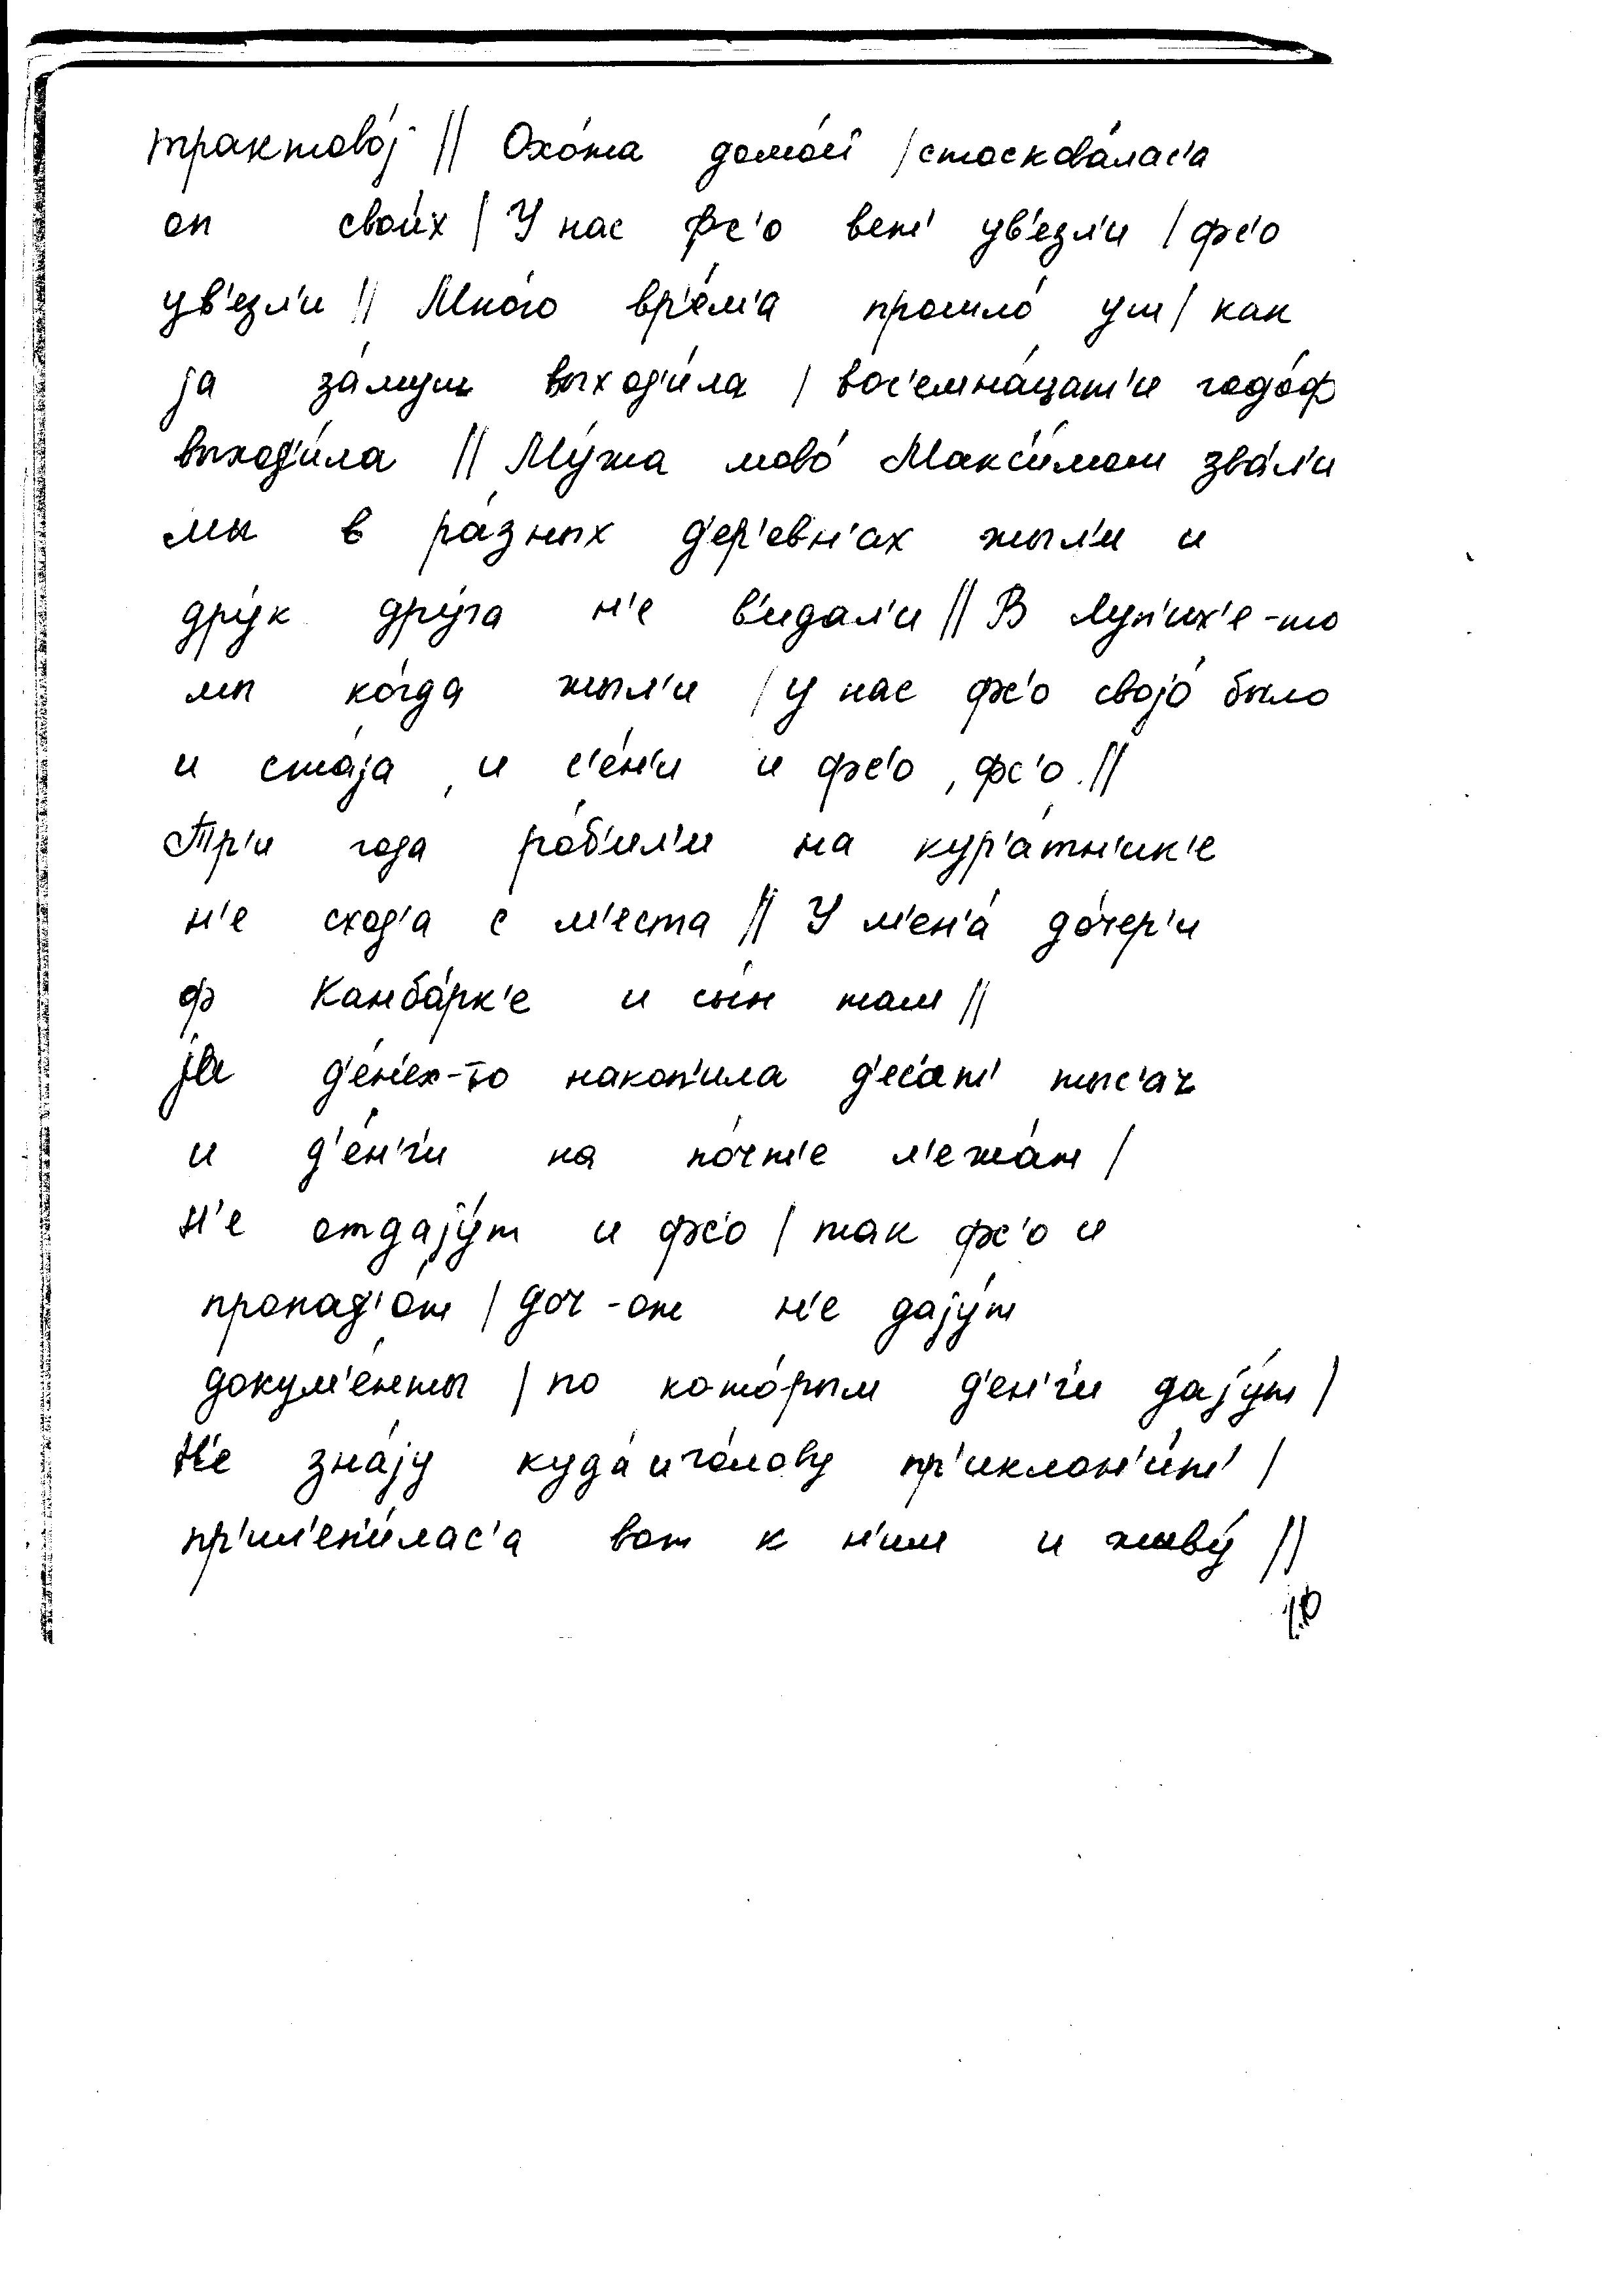 трактово́ј || Охо́та домо́й | стоскова́лас'а
оп свои́х | У нас фс'о вет' ув'езл'и | фс'о
ув'езл'и || Мно́го вр'е́м'а прошло́ уш | как
ја за́муш выход'и́ла | вос'емна́цат'и годо́ф
выход'и́ла || Му́жа мово́ Макс'и́мом зва́л'и
мы в ра́зных д'ер'евн'ах жыл'и и
дру́к дру́га н'е в'идал'и || В Луп'их'е-то
мы ко́гда жыл'и | у нас фс'о својо́ было
и ста́ја, и с'е́н'и и фс'о, фс'о. ||
Тр'и года ро́б'ил'и на кур'а́тн'ик'е
н'е сход'а с м'еста || У м'ен'а́ до́чер'и
ф Камба́рк'е и сы́н там ||
Ја д'е́н'ех-то накоп'ила д'ес'ат' тыс'ач
и д'е́н'г'и на по́чт'е л'ежа́т |
Н'е отдају́т и фс'о | так фс'о и
пропад'о́т | доч-от н'е дају́т
докум'е́нты | по кото́рым д'ен'г'и дају́т |
Н'е зна́ју куда́ и го́лову пр'иклон'и́т' |
пр'ил'еп'и́лас'а вот к н'им и живу́ ||